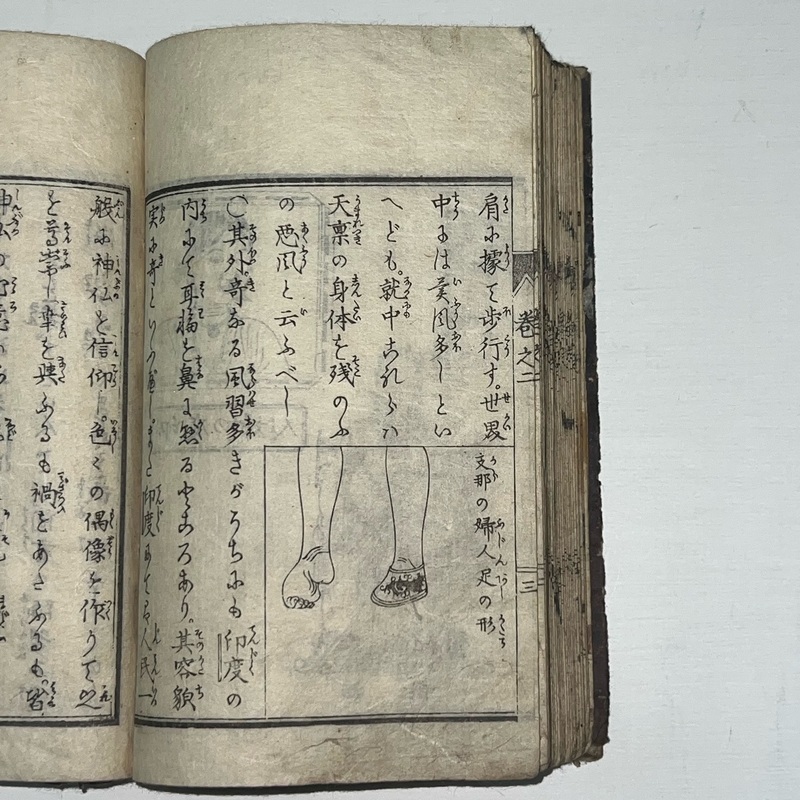 肩に據て歩行す。世界
中には異風多しとい
へども。就中これらハ
天禀の身体を残のふ
の悪風と云ふべし
〇其外奇なる風習多きがうちにも印度の
内にて耳輪を鼻に懸るところあり。其容貌
実に奇といふべしまた印度にてハ人民一
支那の婦人足の形
巻之二
三
般に神仏を信仰し。色々の偶像を作りて之
を尊崇し幸を與ふるも禍をあたふるも。皆